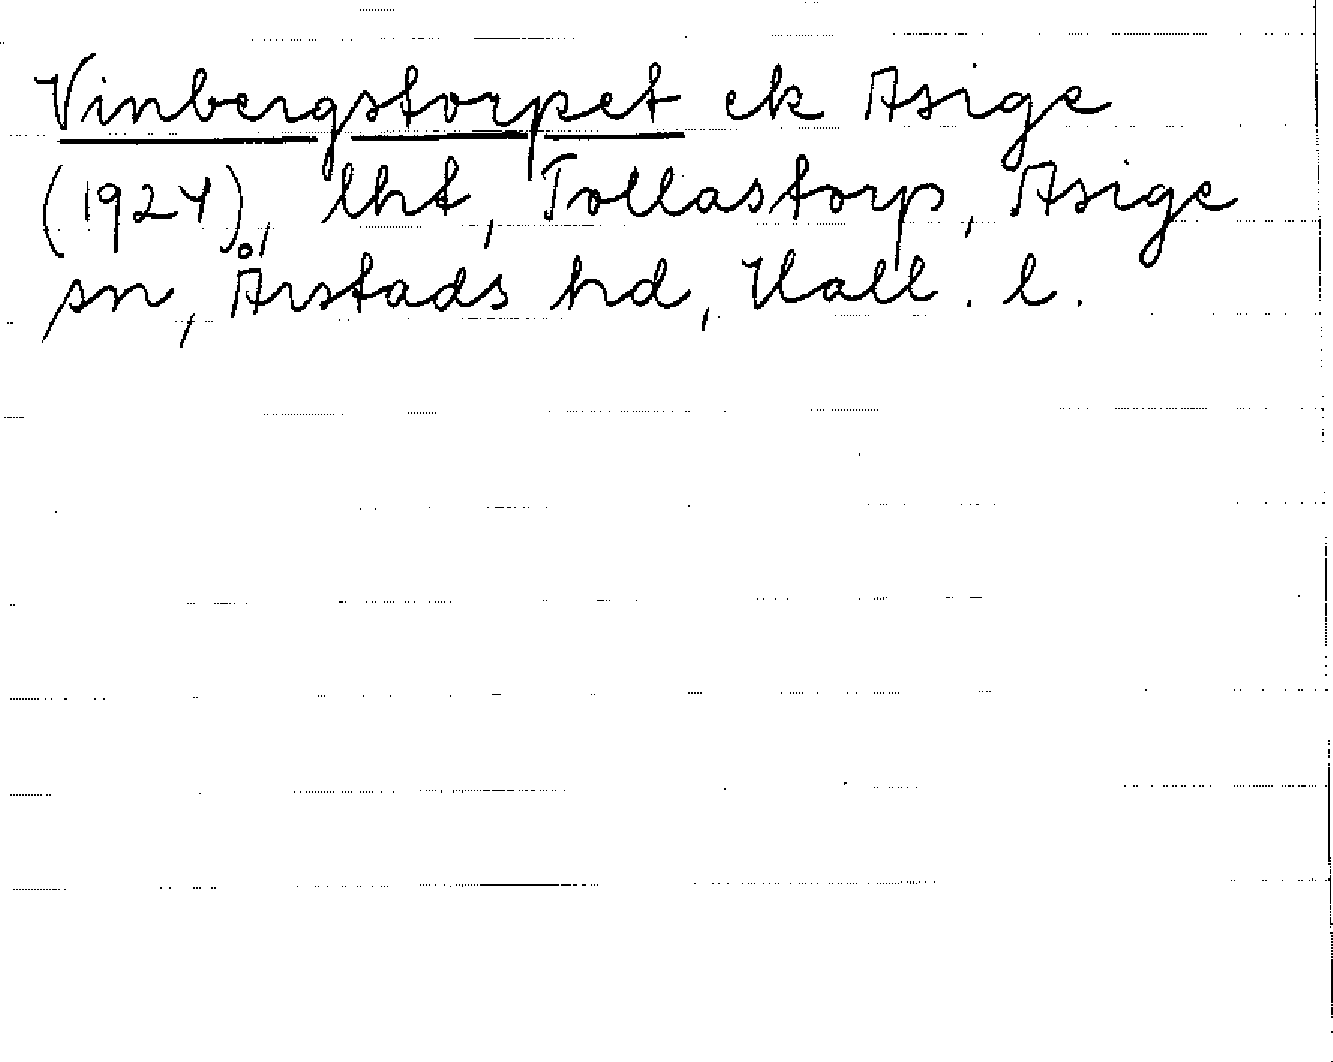 Vinbergstorpet ek Asige
(1924), lht, Tollastorp, Asige
sn, Årstads hd, Hall. l.